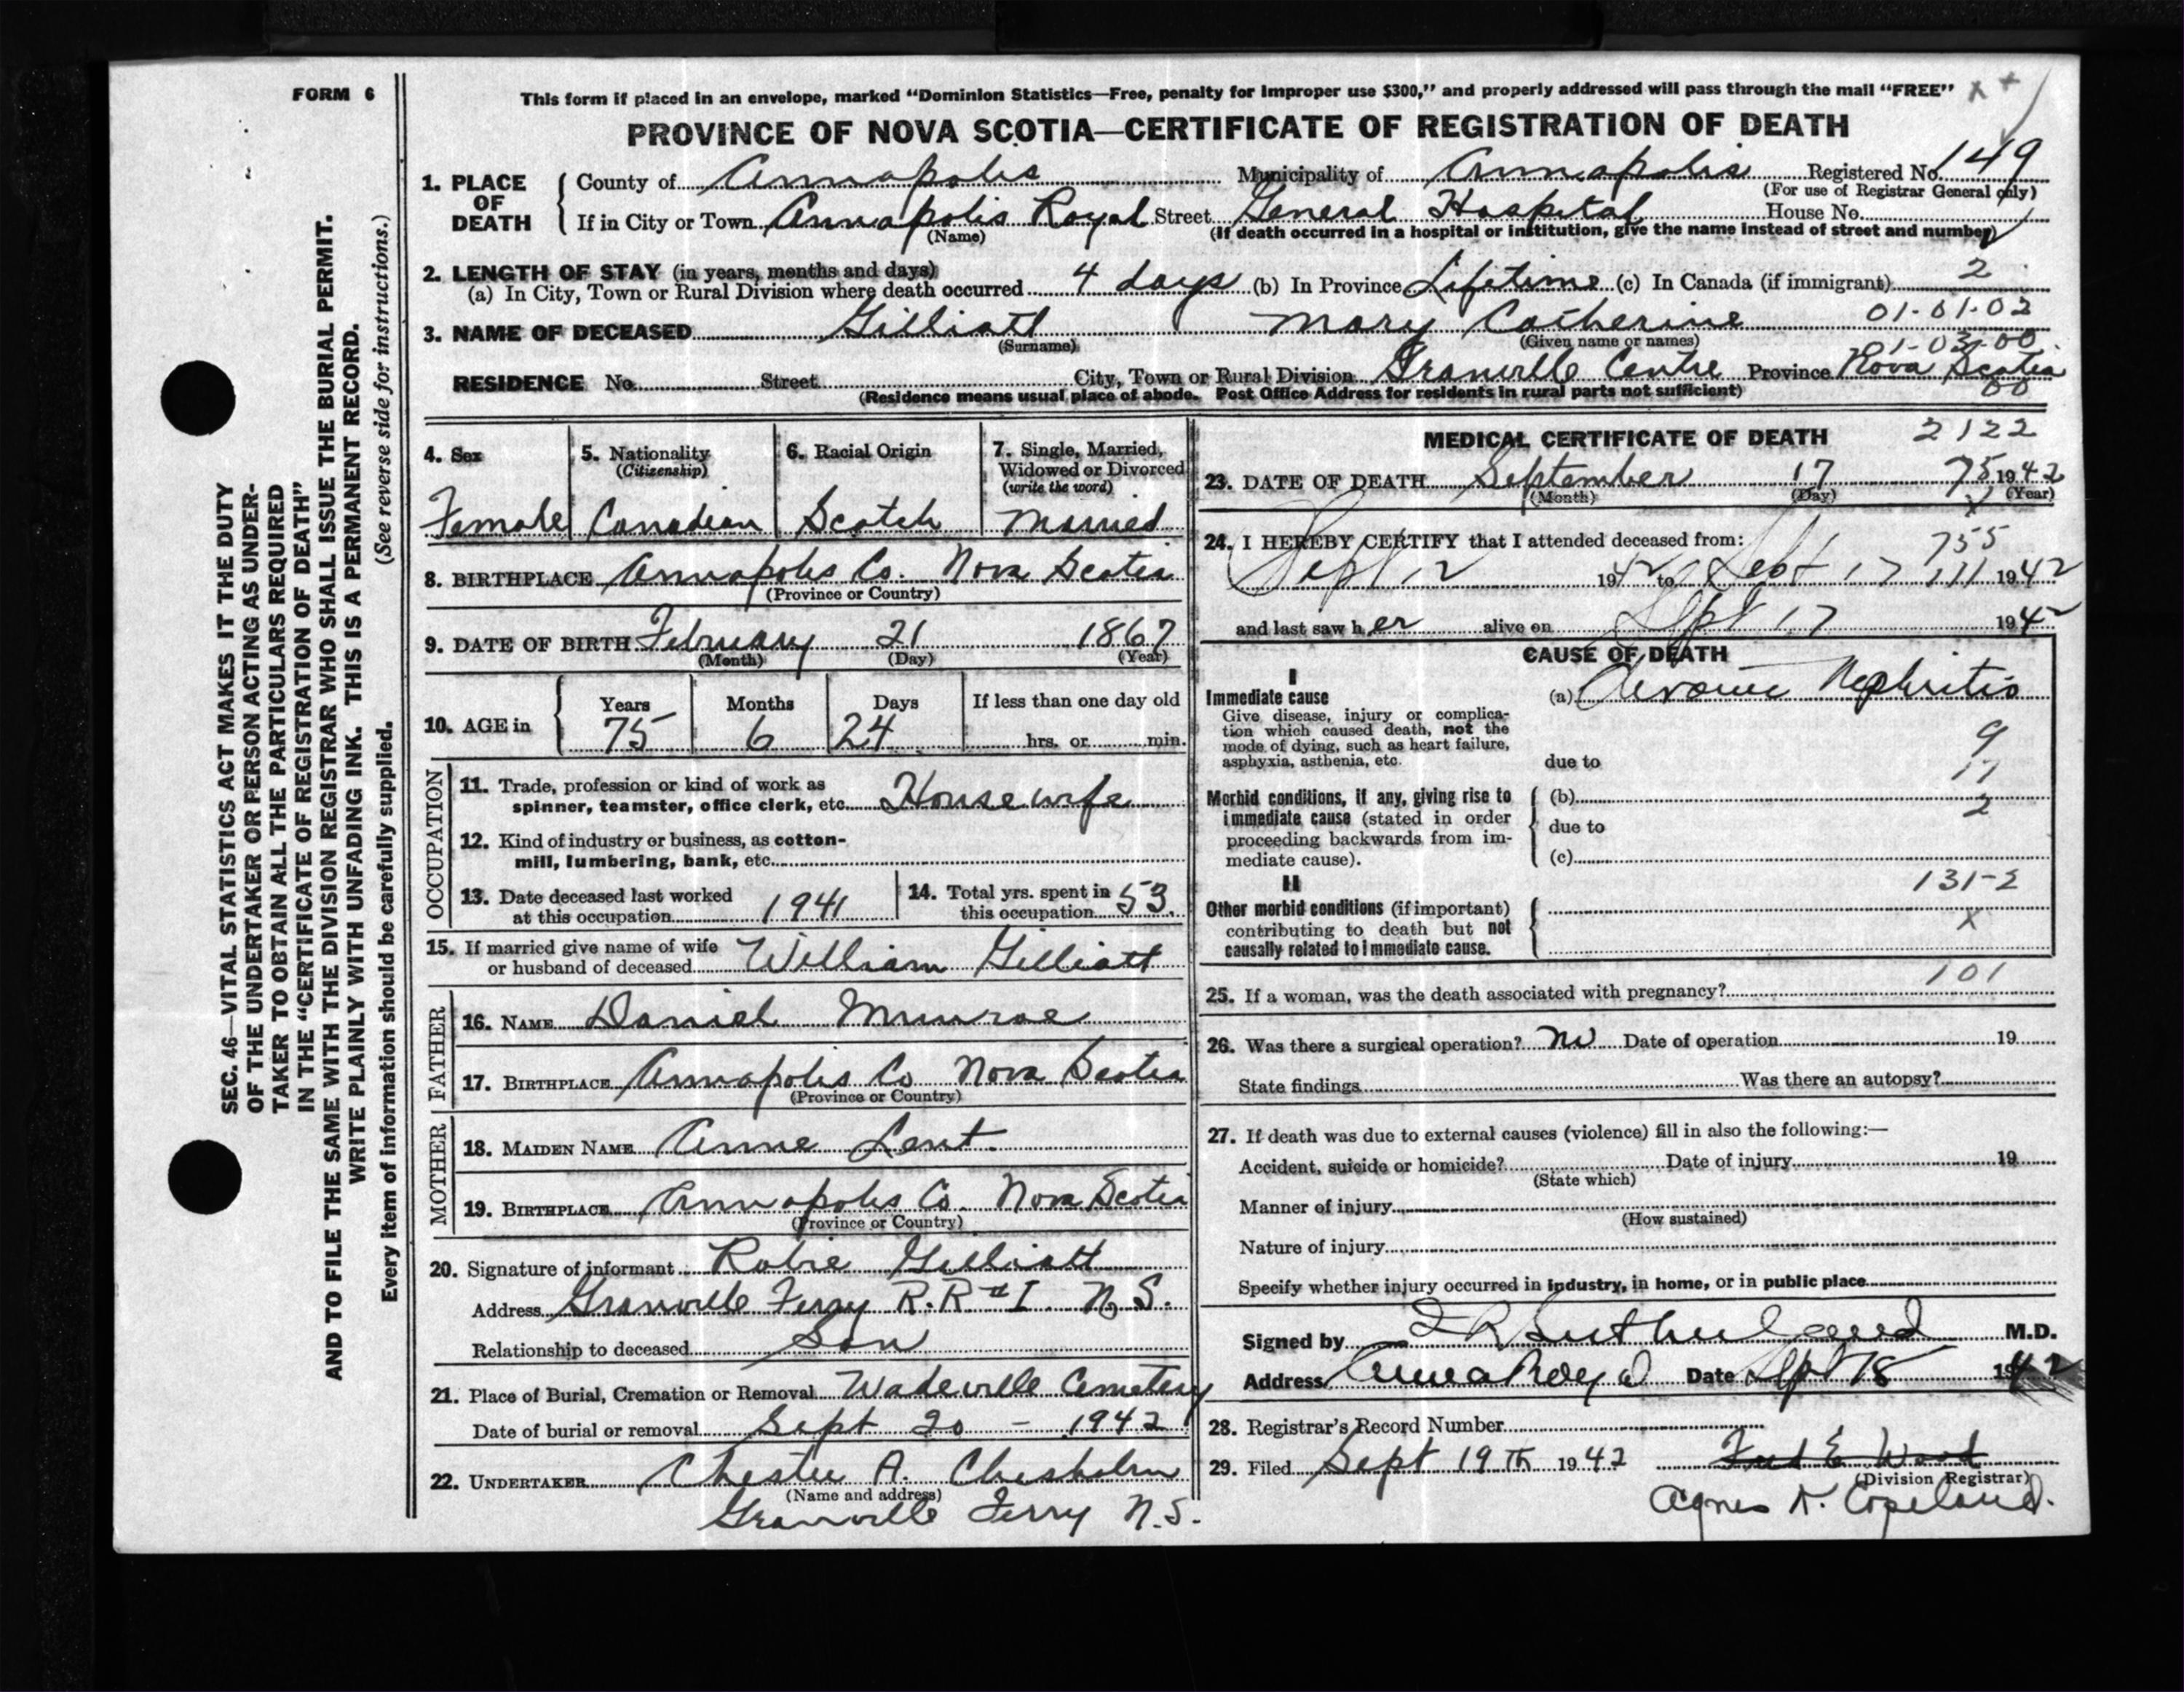 FORM 6
SEC. 46—VITAL STATISTICS ACT MAKES IT THE DUTY
OF THE UNDERTAKER OR PERSON ACTING AS UNDER-
TAKER TO OBTAIN ALL THE PARTICULARS REQUIRED
IN THE "CERTIFICATE OF REGISTRATION OF DEATH"
AND TO FILE THE SAME WITH THE DIVISION REGISTRAR WHO SHALL ISSUE THE BURIAL PERMIT.
WRITE PLAINLY WITH UNFADING INK. THIS IS A PERMANENT RECORD.
Every item of information should be carefully supplied. (See reverse side for instructions.)
This form if placed in an envelope, marked "Dominion Statistics—Free, penalty for improper use $300," and properly addressed will pass through the mail "FREE"
PROVINCE OF NOVA SCOTIA—CERTIFICATE OF REGISTRATION OF DEATH
1. PLACE OF DEATH
County of Annapolis Municipality of Annapolis Registered No. 149
(For use of Registrar General only)
If in City or Town Annapolis Royal Street General Hospital House No.
(Name) (If death occurred in a hospital or institution, give the name instead of street and number)
2. LENGTH OF STAY (in years, months and days)
(a) In City, Town or Rural Division where death occurred 4 days (b) In Province Lifetime (c) In Canada (if immigrant) 2
01-01-02
3. NAME OF DECEASED Gilliatt Mary Catherine
(Surname) (Given name or names)
01-03-00
RESIDENCE No. Street City, Town or Rural Division Granville Centre Province Nova Scotia
(Residence means usual place of abode. Post Office Address for residents in rural parts not sufficient) 00
4. Sex
Female
5. Nationality
(Citizenship)
Canadian
6. Racial Origin
Scotch
7. Single, Married,
Widowed or Divorced
(write the word)
Married
8. BIRTHPLACE Annapolis Co. Nova Scotia
(Province or Country)
9. DATE OF BIRTH February 21 1867
(Month) (Day) (Year)
10. AGE in
Years Months Days If less than one day old
75 6 24 hrs. or min.
OCCUPATION
11. Trade, profession or kind of work as
spinner, teamster, office clerk, etc. Housewife
12. Kind of industry or business, as cotton-
mill, lumbering, bank, etc.
13. Date deceased last worked
at this occupation 1941
14. Total yrs. spent in
this occupation 53.
15. If married give name of wife
or husband of deceased William Gilliatt
FATHER
16. NAME Daniel Munroe
17. BIRTHPLACE Annapolis Co Nova Scotia
(Province or Country)
MOTHER
18. MAIDEN NAME Anne Lent.
19. BIRTHPLACE Annapolis Co. Nova Scotia
(Province or Country)
20. Signature of informant Robie Gilliatt
Address Granville Ferry R.R #1. N.S.
Relationship to deceased Son
21. Place of Burial, Cremation or Removal Wadeville Cemetery
Date of burial or removal Sept 20 - 1942
22. UNDERTAKER Chester A. Chesholm
(Name and address)
Granville Ferry N.S.
MEDICAL CERTIFICATE OF DEATH 2122
23. DATE OF DEATH September 17 75 1942
(Month) (Day) (Year)
24. I HEREBY CERTIFY that I attended deceased from: 755
Sept 12 1942 to Sept 17 111 1942
and last saw her alive on Sept 17 1942
CAUSE OF DEATH
I
Immediate cause (a) Chronic Nephritis
Give disease, injury or complica-
tion which caused death, not the
mode of dying, such as heart failure,
asphyxia, asthenia, etc. due to
9
17
2
Morbid conditions, if any, giving rise to (b)
immediate cause (stated in order due to
proceeding backwards from im-
mediate cause). (c)
II 131-2
Other morbid conditions (if important)
contributing to death but not X
causally related to immediate cause.
101
25. If a woman, was the death associated with pregnancy?
26. Was there a surgical operation? No Date of operation 19
State findings Was there an autopsy?
27. If death was due to external causes (violence) fill in also the following:—
Accident, suicide or homicide? Date of injury 19
(State which)
Manner of injury
(How sustained)
Nature of injury
Specify whether injury occurred in industry, in home, or in public place
Signed by M.D.
Address Date Sept 18 1942
28. Registrar's Record Number
29. Filed Sept 19th 1942 Fred E Wood
(Division Registrar)
Agnes K. Copeland.